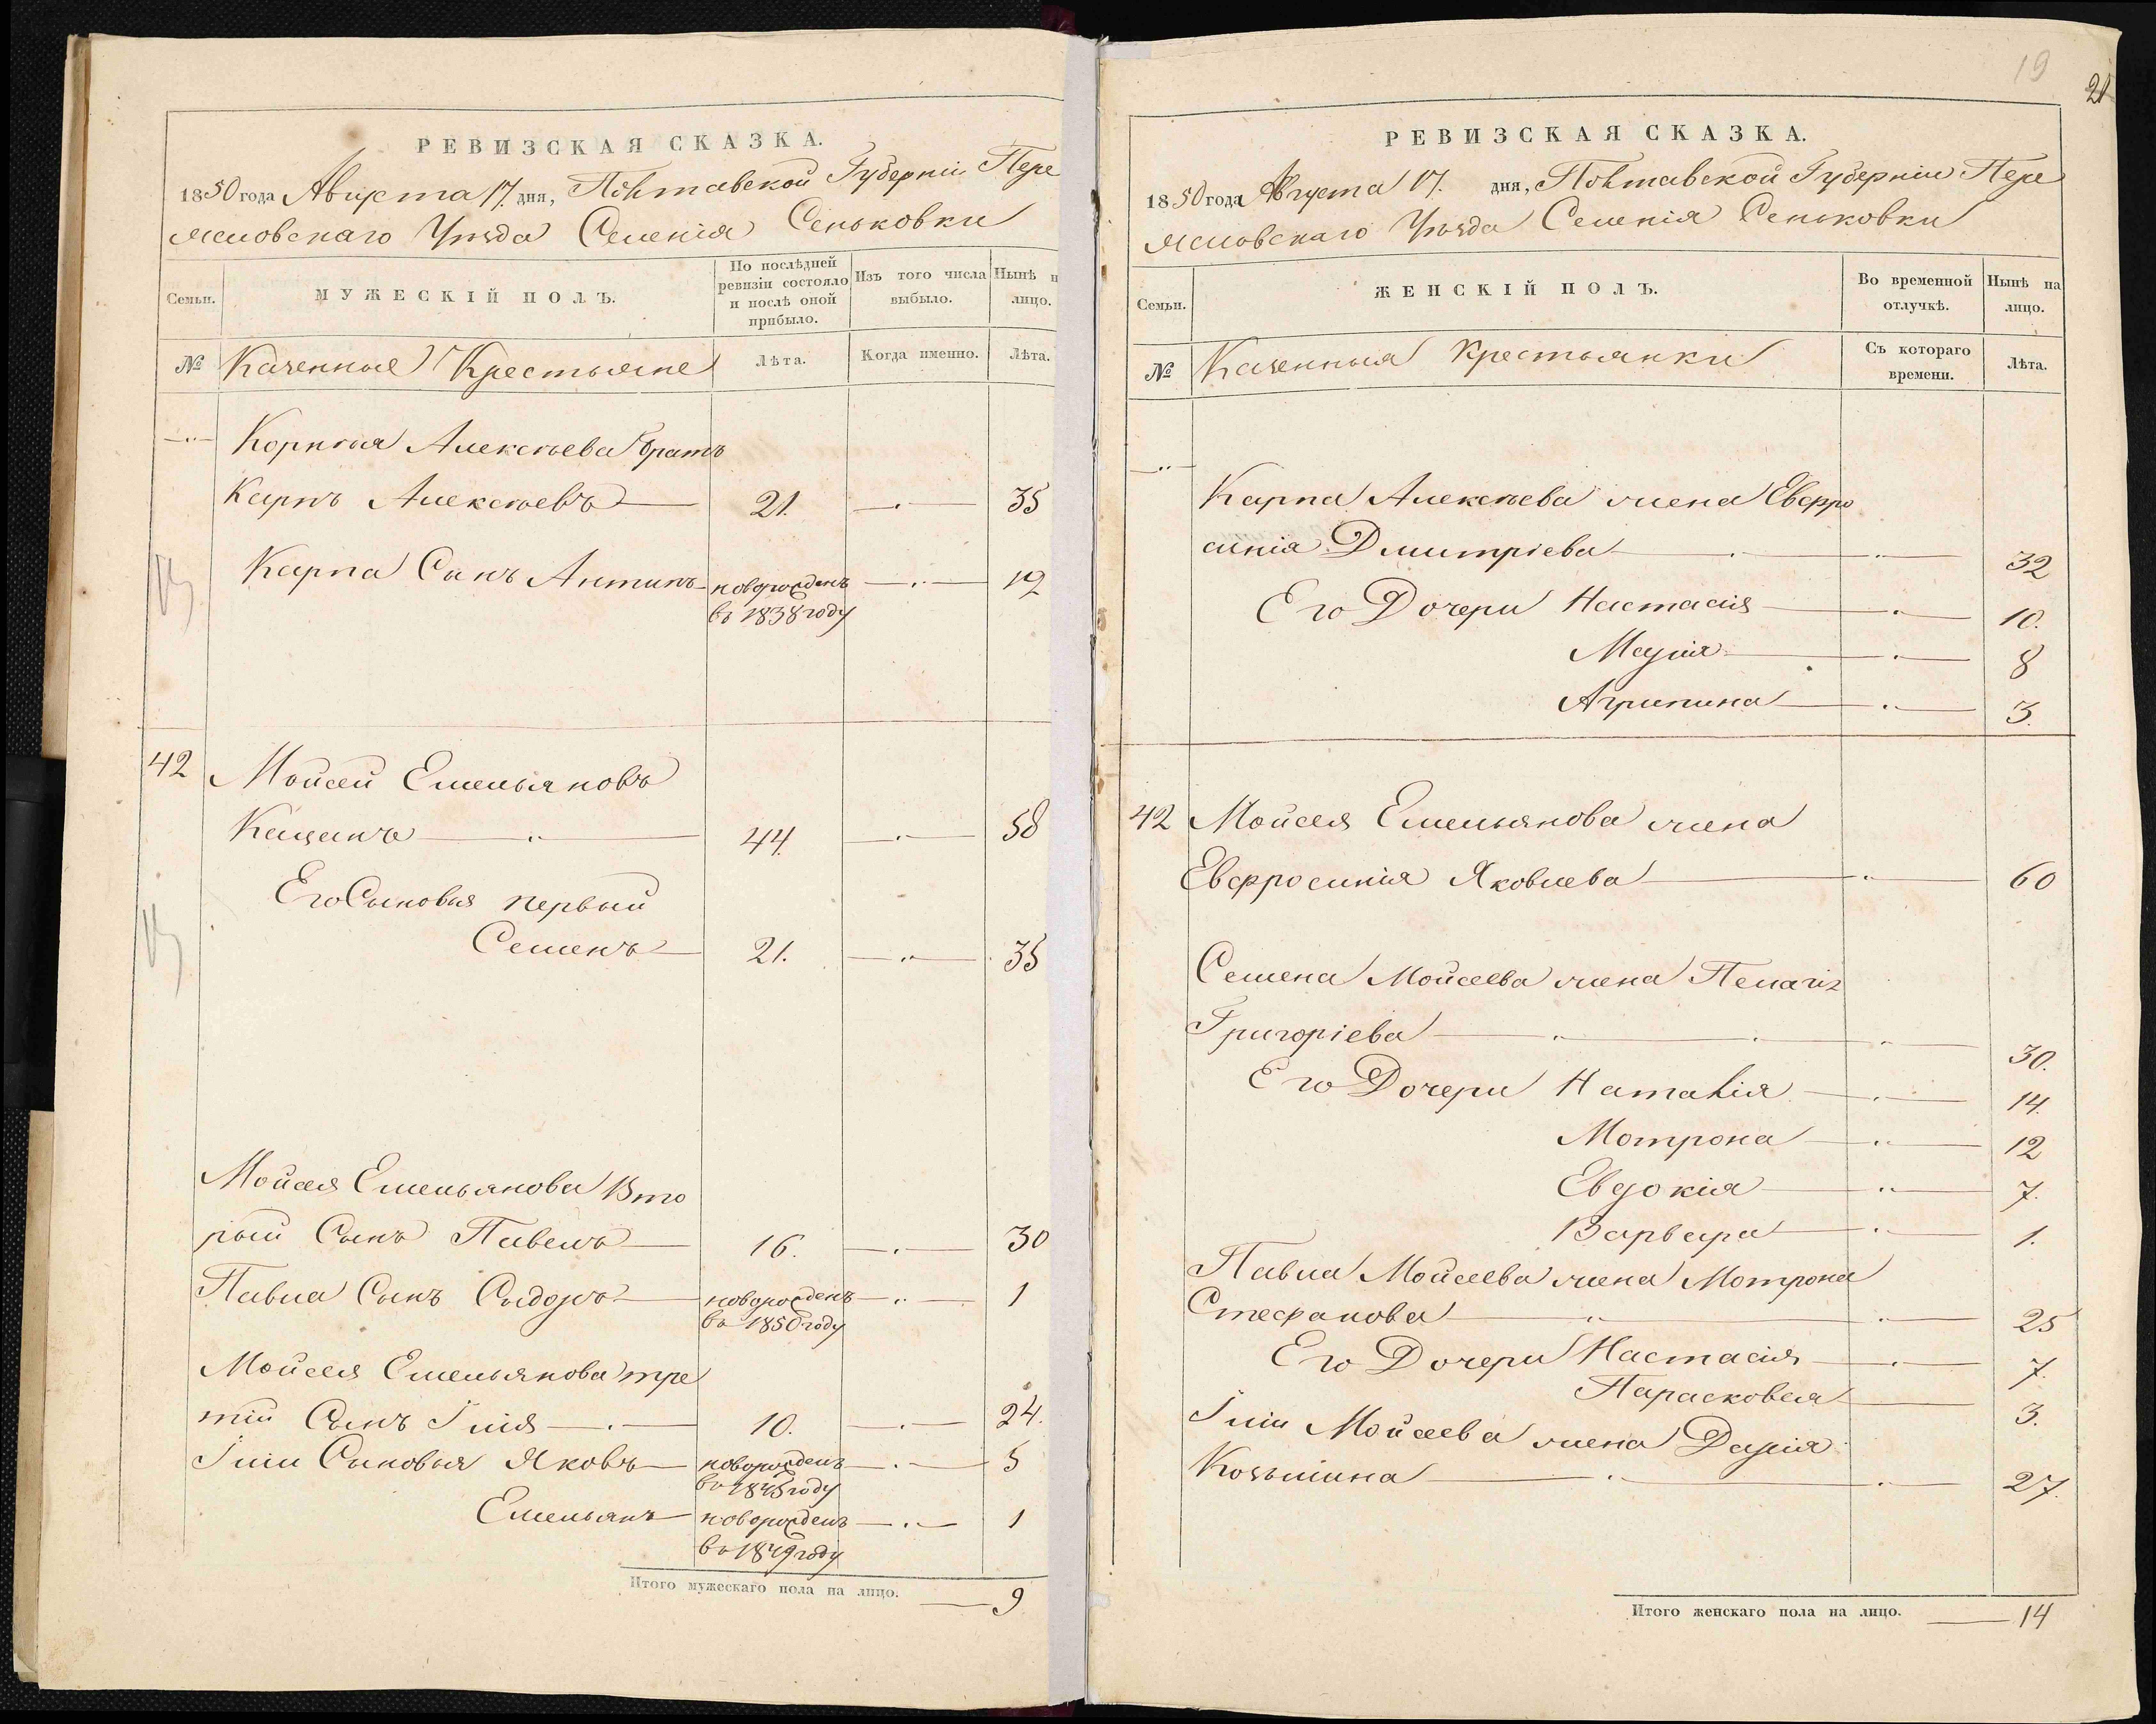 РЕВИЗСКАЯ СКАЗКА.
1850 года Августа 17. дня, Полтавской Губерніи Пере
яславскаго Уѣзда Селенія Сеньковки
Семьи.
МУЖЕСКІЙ ПОЛЪ.
По послѣдней
ревизіи состояло
и послѣ оной
прибыло.
Изъ того числа
выбыло.
Нынѣ н
лицо.
№ Казенные Крестьяне
Лѣта.
Когда именно.
Лѣта.
Корнѣя Алексѣева братъ
Карпъ Алексѣевъ 21. 35
Карпа Сынъ Антипъ новорожденъ 12
въ 1838 году
42 Мойсей Емельяновъ
44. 58
Его Сыновья первый
Семенъ 21. 35
Мойсея Емельянова Вто
рый Сынъ Павелъ 16. 30
Павла Сынъ Сыдоръ новорожденъ 1
въ 1850 году
Мойсея Емельянова тре
тій Сынъ Ілія 10. 24.
Іліи Сыновья Яковъ новорожденъ 5
въ 1845 году
Емельянъ новорожденъ 1
въ 1849 году
Итого мужескаго пола на лицо. 9
19
21
РЕВИЗСКАЯ СКАЗКА.
1850 года Августа 17. дня, Полтавской Губерніи Пере
яславскаго Уѣзда Селенія Сеньковки
Семьи.
ЖЕНСКІЙ ПОЛЪ.
Во временной
отлучкѣ.
Нынѣ на
лицо.
№ Казенныя Крестьянки
Съ котораго
времени.
Лѣта.
Карпа Алексѣева жена Евфро
синія Дмитріева 32
Его Дочери Настасія 10.
Марія 8
Агрипина 3.
42 Мойсея Емельянова жена
Евфросинія Яковлева 60
Семена Мойсеева жена Пелагія
Григоріева 30.
Его Дочери Наталія 14.
Мотрона 12
Евдокія 7.
Варвара 1.
Павла Мойсеева жена Мотрона
Стефанова 25
Его Дочери Настасія 7.
Парасковея 3.
Іліи Мойсеева жена Дарія
Козьмина 27.
Итого женскаго пола на лицо. 14